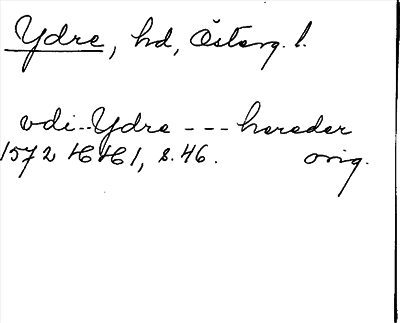 Ydre, hd, Österg. l.
vdi--Ydre --- hereder
1572 HH 1, s. 46. orig.